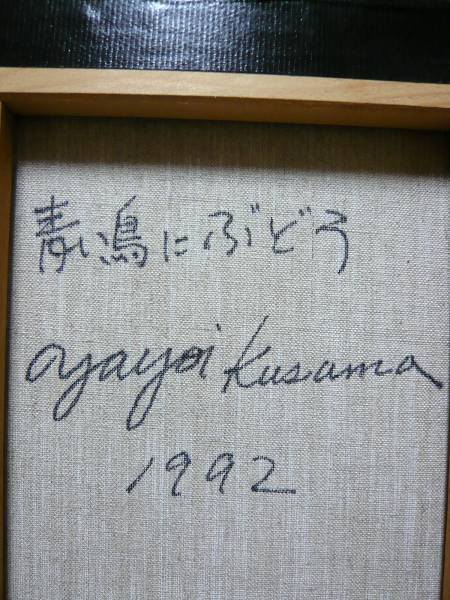 青い鳥にぶどう
yayoi Kusama
1992